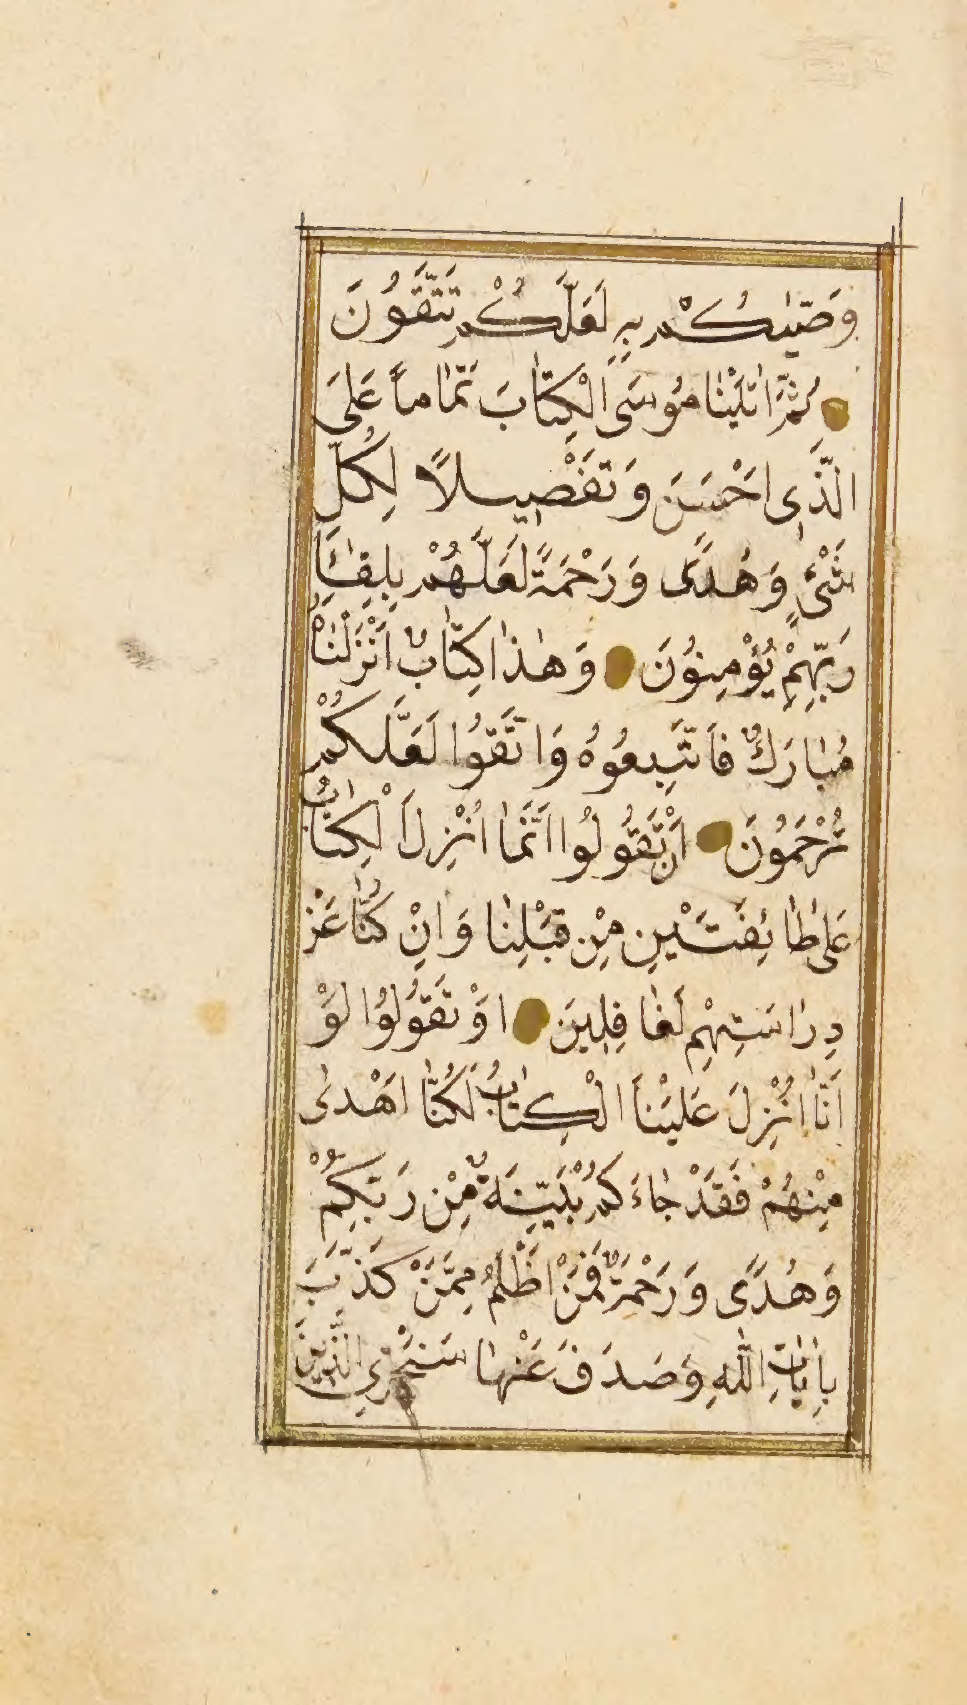 وَصّٰيكُمْ بِهِ لَعَلَّكُمْ تَتَّقُونَ
ثُمَّ اٰتَيْنَا مُوسَى الْكِتَابَ تَمَامًا عَلَى
الَّذٖى اَحْسَنَ وَتَفْصِيلًا لِكُلِّ
شَىْءٍ وَهُدًى وَرَحْمَةً لَعَلَّهُمْ بِلِقَٓاءِ
رَبِّهِمْ يُؤْمِنُونَ وَهٰذَا كِتَابٌ اَنْزَلْنَاهُ
مُبَارَكٌ فَاتَّبِعُوهُ وَاتَّقُوا لَعَلَّكُمْ
تُرْحَمُونَ اَنْ تَقُولُوا اِنَّمَا اُنْزِلَ الْكِتَابُ
عَلٰى طَائِفَتَيْنِ مِنْ قَبْلِنَا وَاِنْ كُنَّا عَنْ
دِرَاسَتِهِمْ لَغَافِلِينَ اَوْ تَقُولُوا لَوْ
اَنَّا اُنْزِلَ عَلَيْنَا الْكِتَابُ لَكُنَّا اَهْدٰى
مِنْهُمْ فَقَدْ جَاءَكُمْ بَيِّنَةٌ مِنْ رَبِّكُمْ
وَهُدًى وَرَحْمَةٌ فَمَنْ اَظْلَمُ مِمَّنْ كَذَّبَ
بِاٰيَاتِ اللّٰهِ وَصَدَفَ عَنْهَا سَنَجْزِي الَّذِينَ